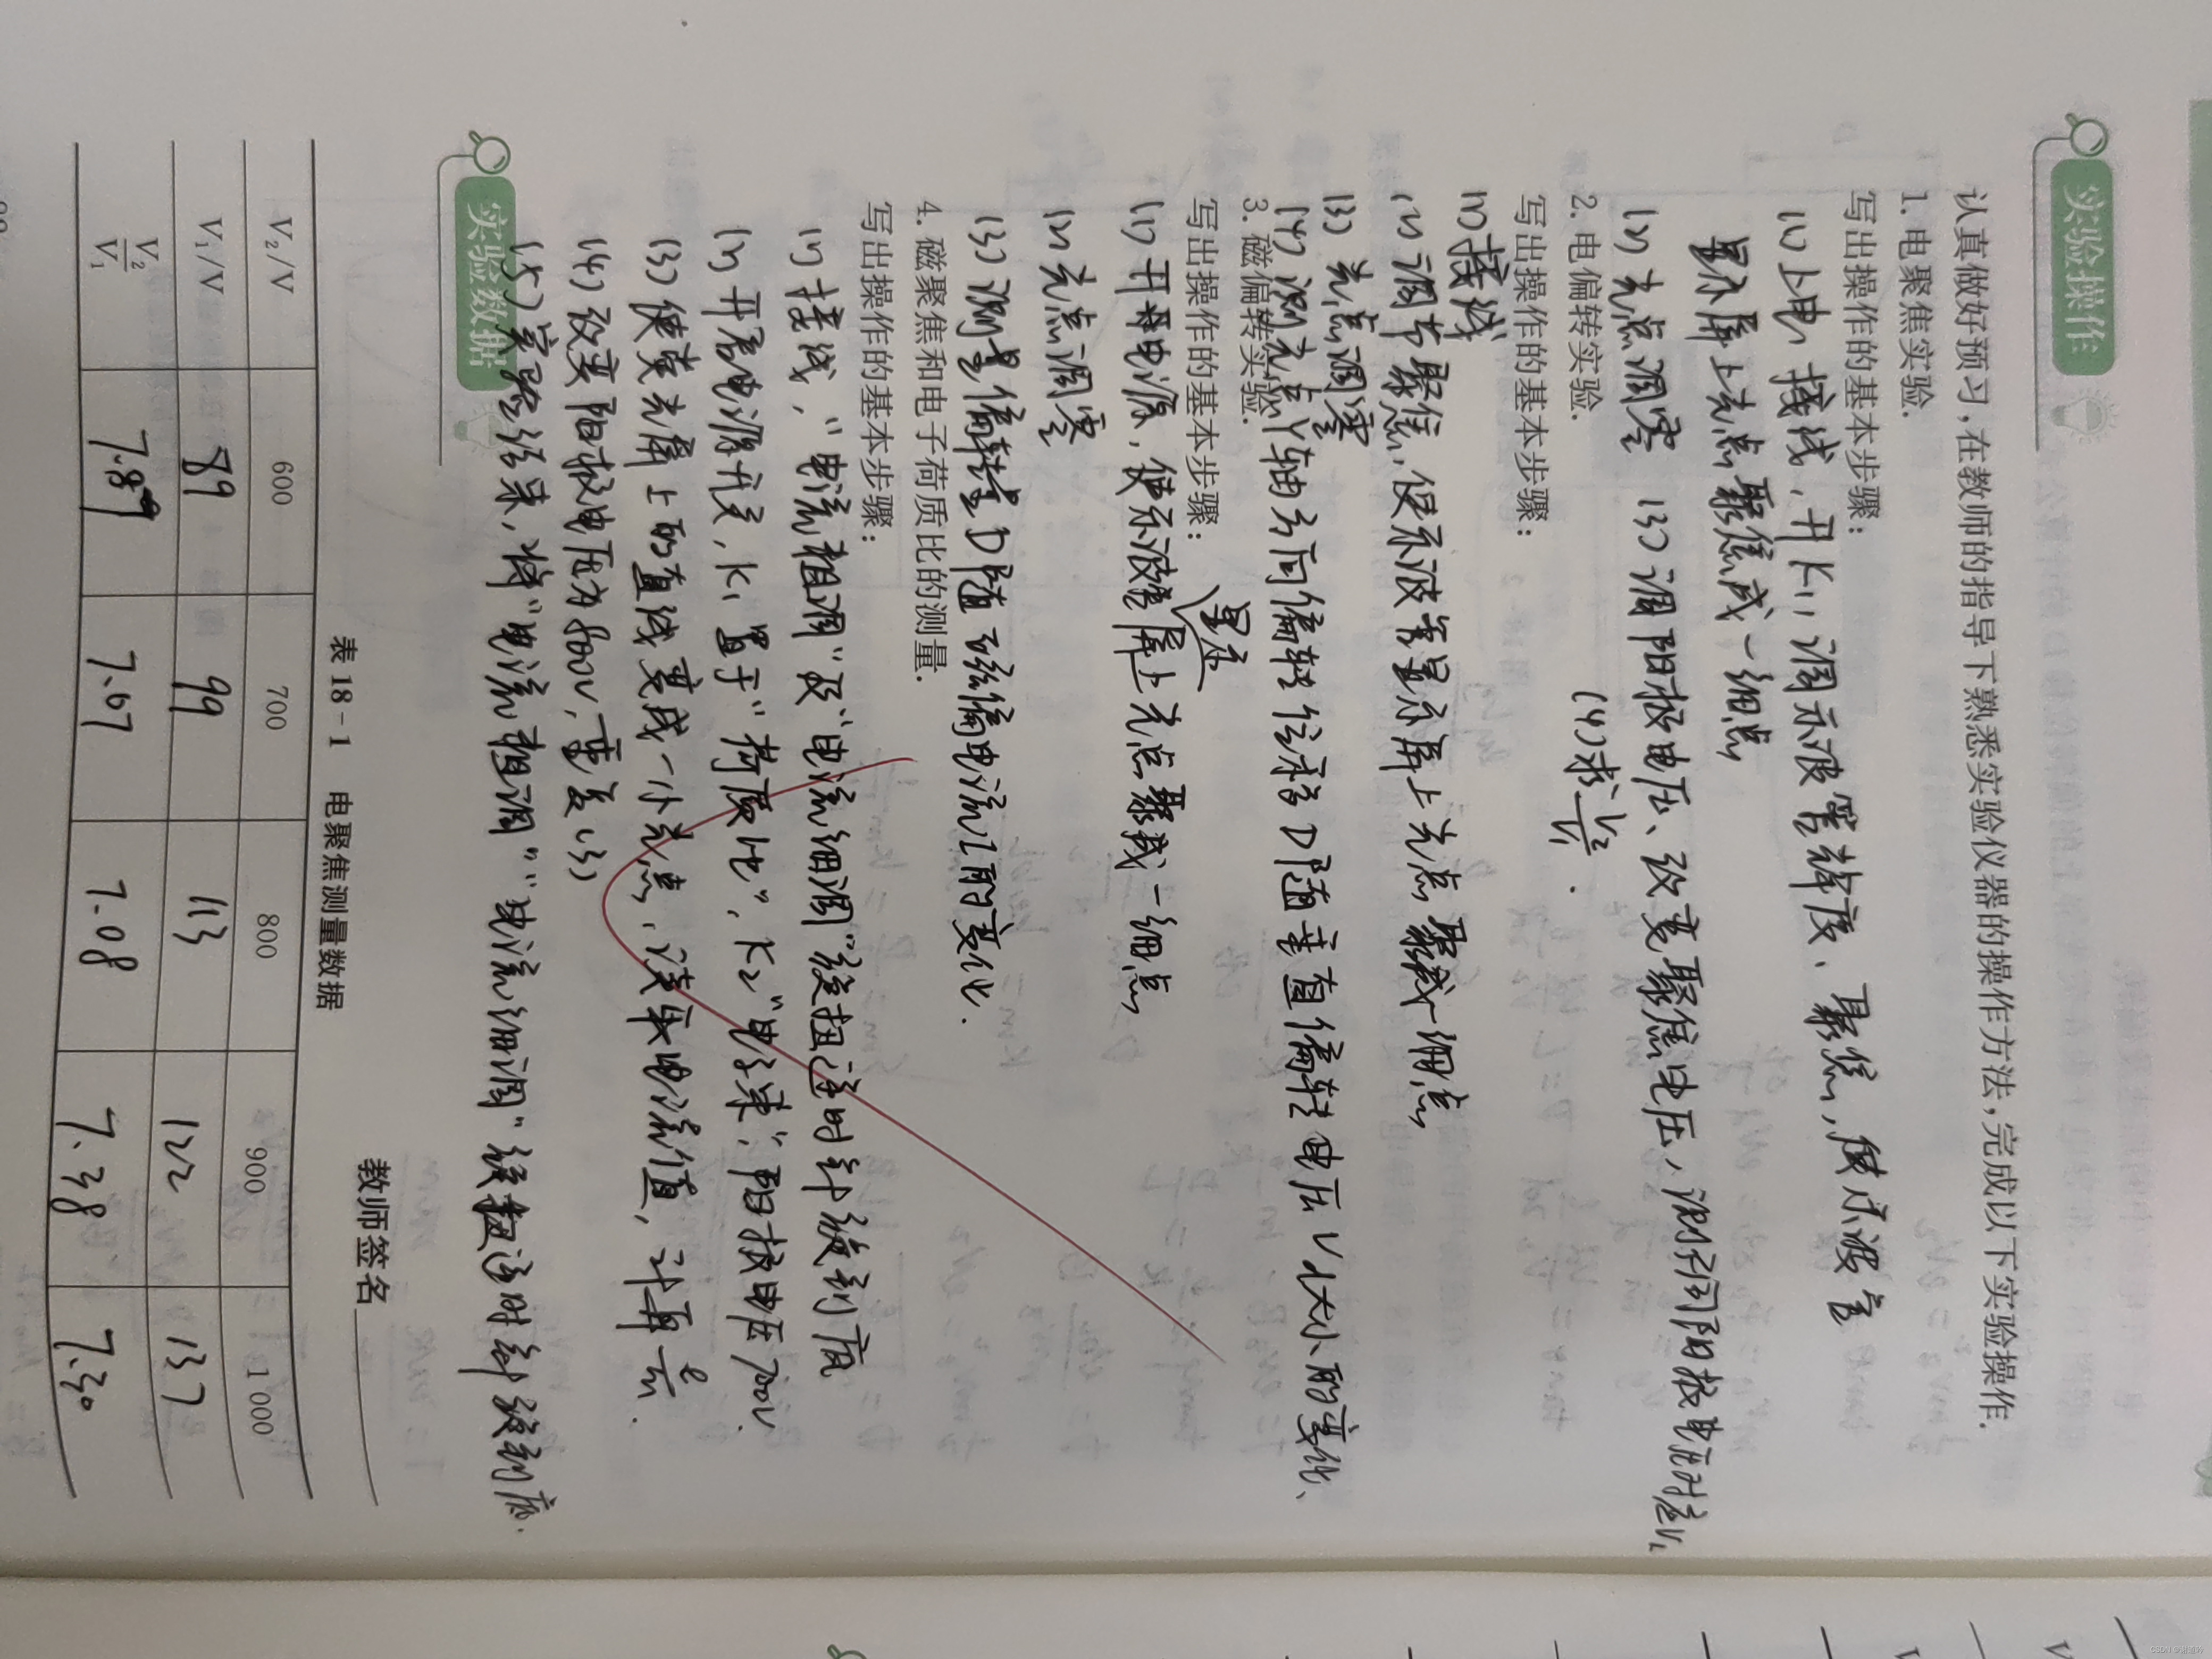 实验操作
认真做好预习,在教师的指导下熟悉实验仪器的操作方法,完成以下实验操作.
1. 电聚焦实验.
写出操作的基本步骤:
(1)上电,接线,开K1,调示波管辉度、聚焦,使示波管
显示屏上光点聚焦成一细点
(2)光点调零 (3)调阳极电压、改变聚焦电压,测不同阳极电压对应V1
(4)求V2/V1.
2. 电偏转实验.
写出操作的基本步骤:
(1)接线
(2)调节聚焦,使示波管显示屏上光点聚成一细点
(3)光点调零
(4)测光点Y轴方向偏转位移D随垂直偏转电压V大小的变化、
3. 磁偏转实验.
写出操作的基本步骤:
(1)开电源,使示波管显示屏上光点聚成一细点
(2)光点调零
(3)测量偏转量D随磁偏电流I的变化.
4. 磁聚焦和电子荷质比的测量.
写出操作的基本步骤:
(1)接线,"电流粗调"及"电流细调"旋扭逆时针旋到底
(2)开启电源开关,K1置于"荷质比",K2"电子束",阳极电压700V.
(3)使荧光屏上的直线变成一个光点,读取电流值,计算e/m.
(4)改变阳极电压为800V,重复(3)
(5)实验结束,将"电流粗调""电流细调"旋钮逆时针旋到底.
实验数据
教师签名
表 18-1 电聚焦测量数据
V2/V 600 700 800 900 1 000
V1/V 89 99 113 122 137
V2/V1 7.89 7.07 7.08 7.38 7.30
CSDN